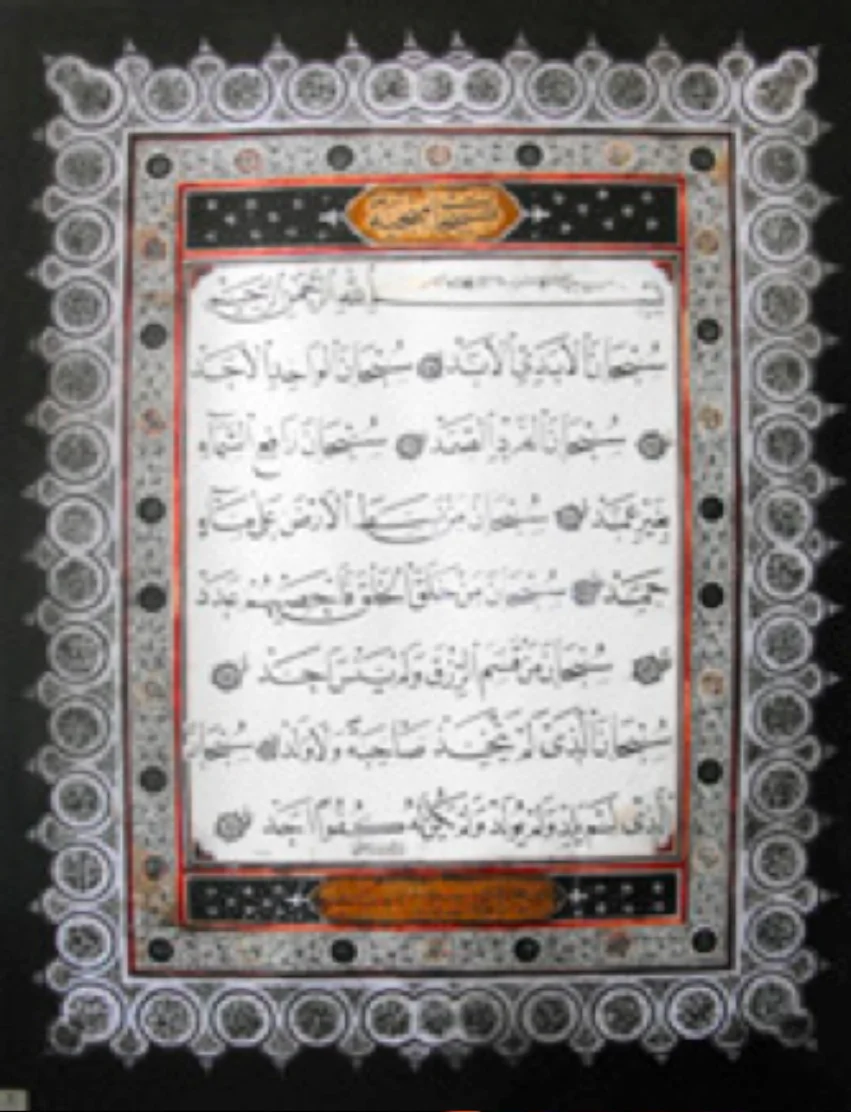 بسم الله الرحمن الرحيم
سبحان الأبدي الأبد سبحان الواحد الأحد
سبحان الفرد الصمد سبحان رافع السماء
بغير عمد سبحان من بسط الأرض على ماء
جمد سبحان من خلق الخلق فأحصيهم عدد
سبحان من قسم الرزق ولم ينس احد
سبحان الذى لم يتخذ صاحبة ولا ولد سبحان
الذى لم يلد ولم يولد ولم يكن له كفوا احد